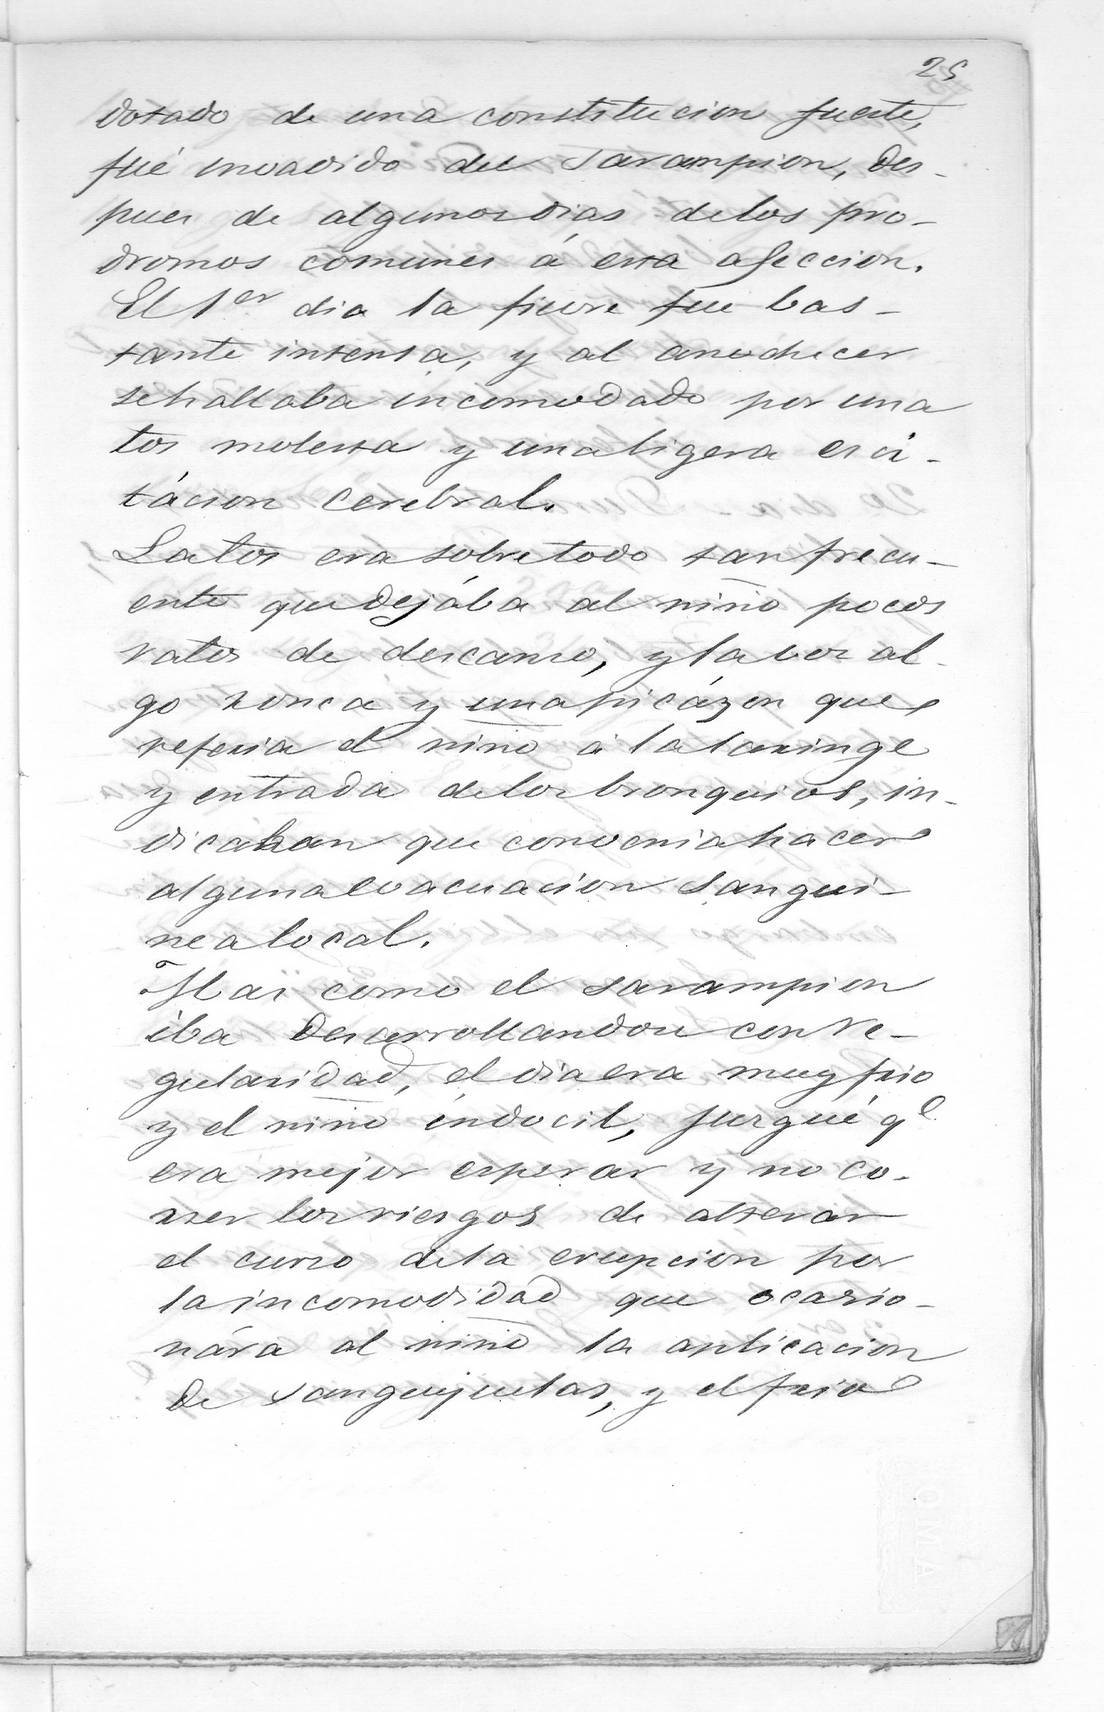 25
dotado de una constitucion fuerte,
fué invadido del sarampion, des-
pues de algunos dias de los pro-
dromos comunes á esta afeccion.
El 1er dia la fiebre fue bas-
tante intensa, y al anochecer
se hallaba incomodado por una
tos molesta y una ligera esci-
tácion cerebral.
La tos era sobre todo tan frecu-
ente que dejába al niño pocos
ratos de descanso, y la voz al-
go ronca y una picázon que
referia el niño á la laringe
y entrada de los bronquios, in-
dicaban que convenia hacer
alguna evacuacion sangui-
nea local.
Mas como el sarampion
iba desarrollandose con re-
gularidad, el dia era muy frio
y el niño indocil, jurgué qe
era mejor esperar y no co-
rrer los riesgos de alterar
el curso de la erupcion por
la incomodidad que ocasio-
nára al niño la aplicacion
de sanguijuelas, y el frio